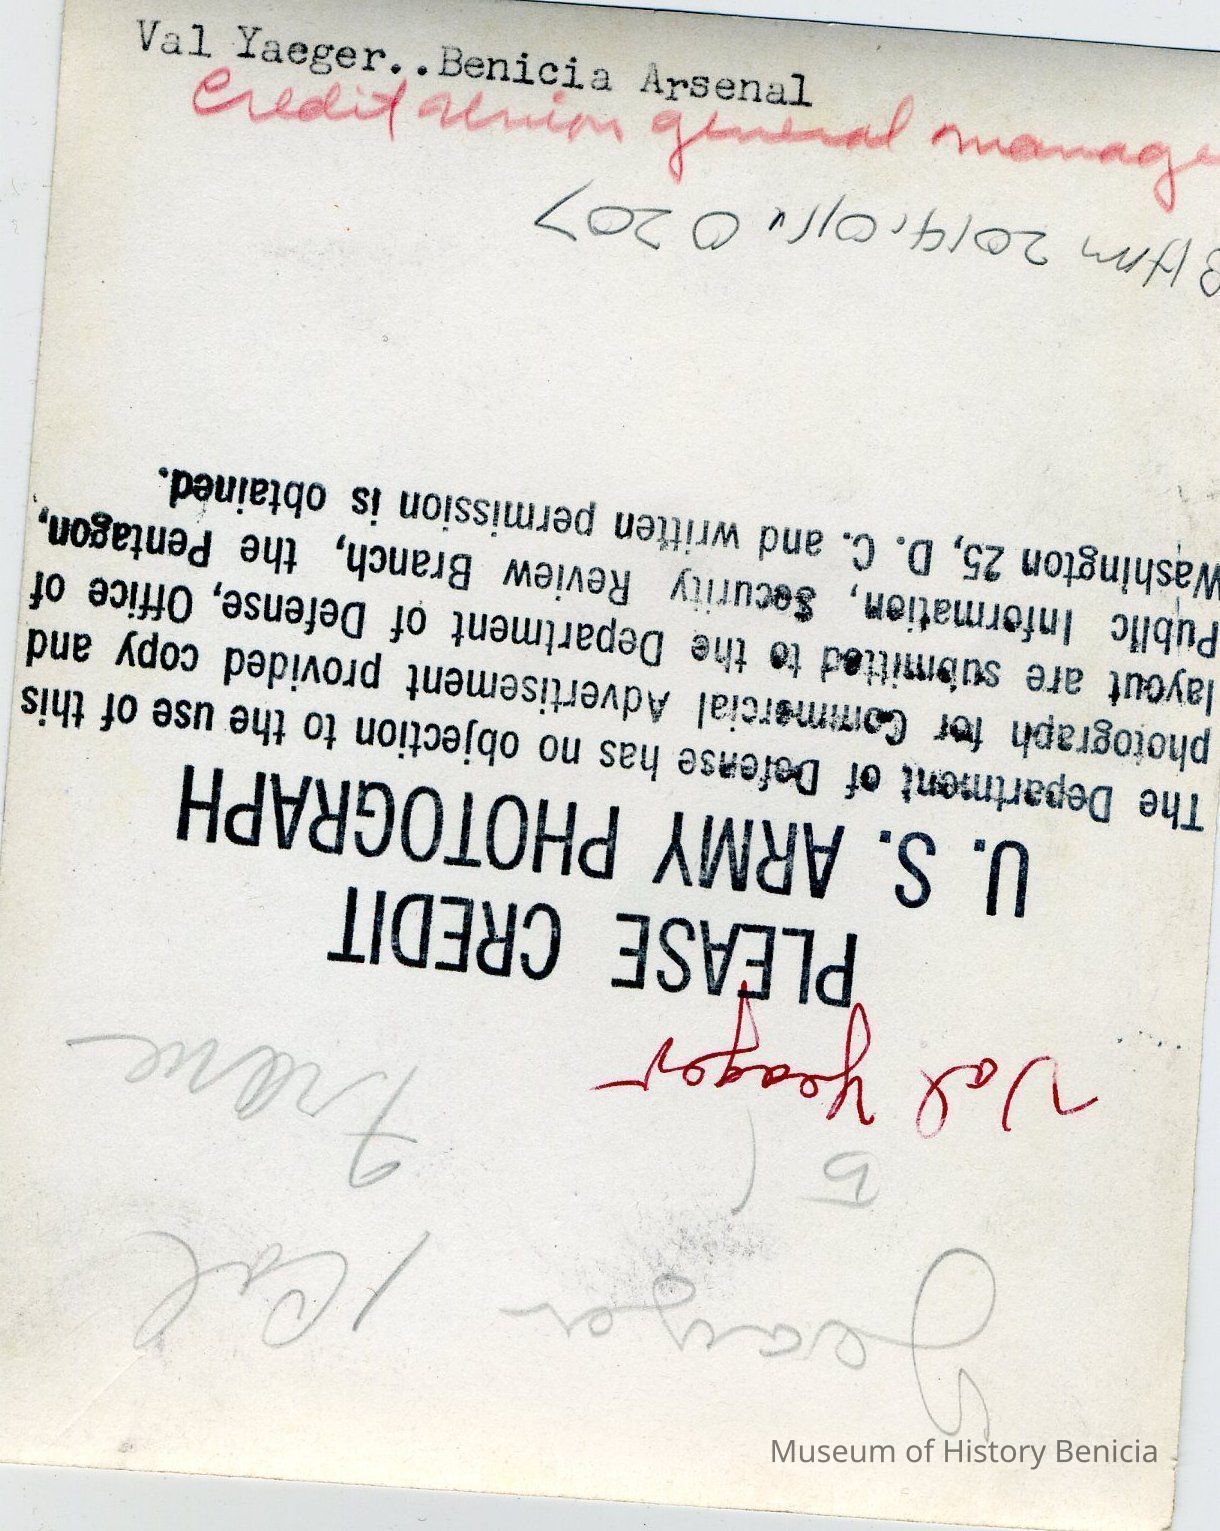 Val Yaeger..Benicia Arsenal
Credit union general manage
BHM
Yeager Val
5
Frame
Val Yeager
PLEASE CREDIT
U. S. ARMY PHOTOGRAPH
The Department of Defense has no objection to the use of this
photograph for Commercial Advertisement provided copy and
layout are submitted to the Department of Defense, Office of
Public Information, Security Review Branch, the Pentagon,
Washington 25, D. C. and written permission is obtained.
Museum of History Benicia